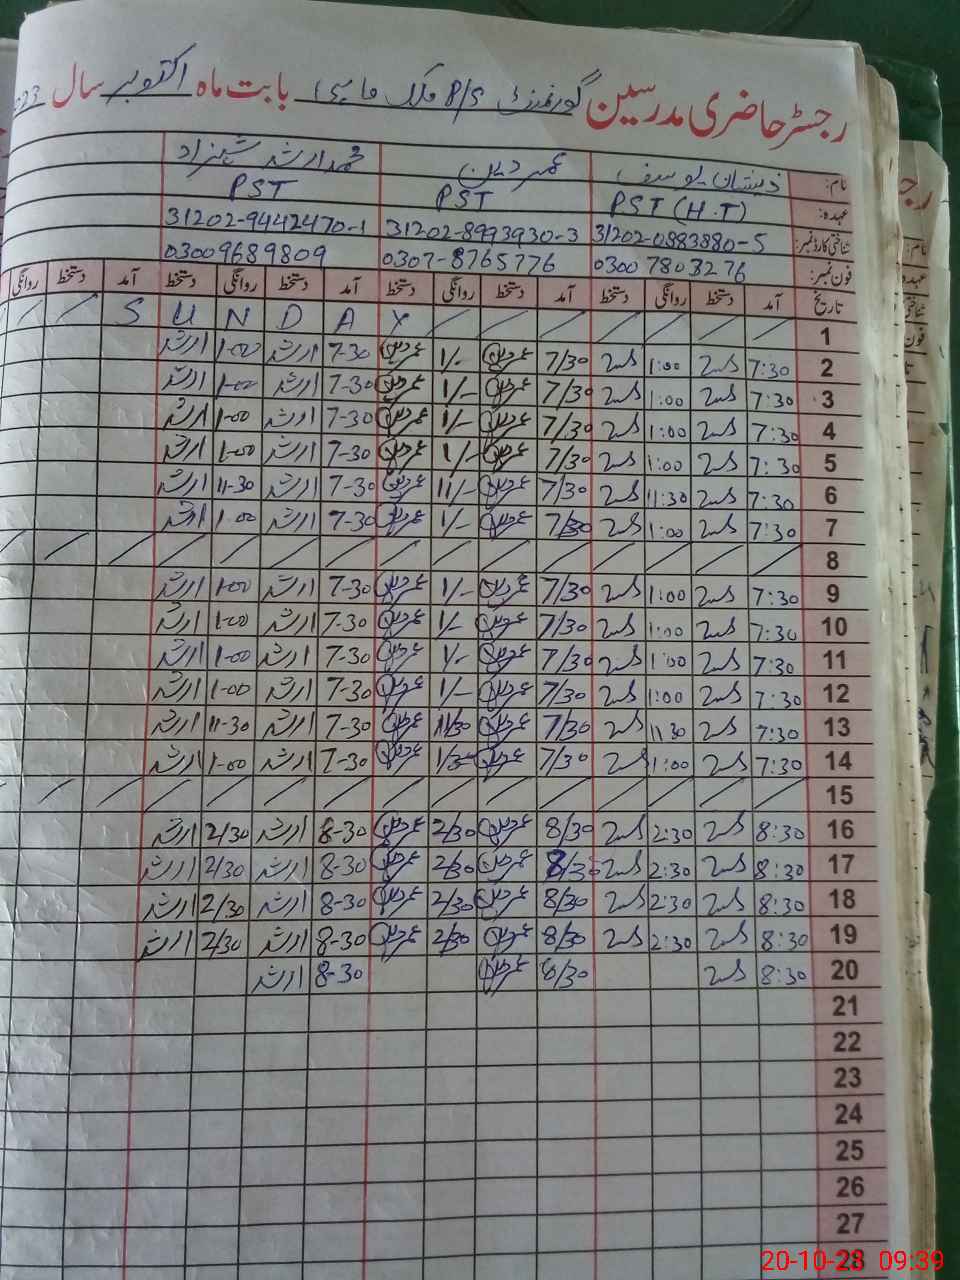 رجسٹر حاضری مدرسین گورنمنٹ P/S ملک ماہی بابت ماہ اکتوبر سال 2023
نام: ذیشان یوسف عمر دین محمد ارشد شہزاد
عہدہ: PST (H.T) PST PST
شناختی کارڈ نمبر: 31202-0883880-5 31202-8993930-3 31202-9442470-1
فون نمبر: 0300 7803276 0307-8765776 03009689809
تاریخ آمد دستخط روانگی دستخط آمد دستخط روانگی دستخط آمد دستخط روانگی دستخط آمد دستخط روانگی
1 / / / / / / / Y A D N U S / /
2 7:30 1:00 7/30 عمردین 1/- عمردین 7-30 ارشد 1-00 ارشد
3 7:30 1:00 7/30 عمردین 1/- عمردین 7-30 ارشد 1-00 ارشد
4 7:30 1:00 7/30 عمردین 1/- عمردین 7-30 ارشد 1-00 ارشد
5 7:30 1:00 7/30 عمردین 1/- عمردین 7-30 ارشد 1-00 ارشد
6 7:30 11:30 7/30 عمردین 11/- عمردین 7-30 ارشد 11-30 ارشد
7 7:30 1:00 7/30 عمردین 1/- عمردین 7-30 ارشد 1-00 ارشد
8 / / / / / / / / / / / / / / /
9 7:30 1:00 7/30 عمردین 1/- عمردین 7-30 ارشد 1-00 ارشد
10 7:30 1:00 7/30 عمردین 1/- عمردین 7-30 ارشد 1-00 ارشد
11 7:30 1:00 7/30 عمردین 1/- عمردین 7-30 ارشد 1-00 ارشد
12 7:30 1:00 7/30 عمردین 1/- عمردین 7-30 ارشد 1-00 ارشد
13 7:30 11 30 7/30 عمردین 11/30 عمردین 7-30 ارشد 11-30 ارشد
14 7:30 1:00 7/30 عمردین عمردین 7-30 ارشد 1-00 ارشد
15 / / / / / / / / / / / / / / /
16 8:30 2:30 8/30 عمردین 2/30 عمردین 8-30 ارشد 2/30 ارشد
17 8:30 2:30 8/30 عمردین 2/30 عمردین 8-30 ارشد 2/30 ارشد
18 8:30 2:30 8/30 عمردین 2/30 عمردین 8-30 ارشد 2/30 ارشد
19 8:30 2:30 8/30 عمردین 2/30 عمردین 8-30 ارشد 2/30 ارشد
20 8:30 8/30 عمردین 8-30 ارشد
21
22
23
24
25
26
27
28
20-10-23 09:39